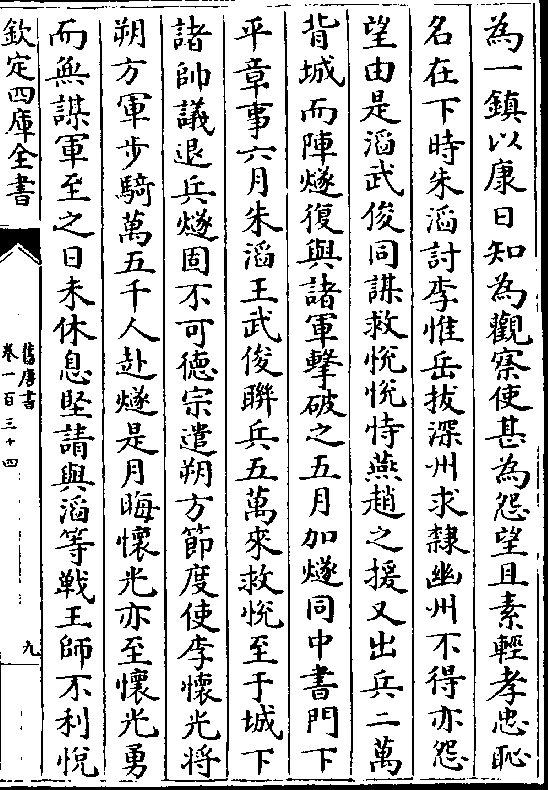 為一鎮以康日知為觀察使甚為怨望且素輕孝忠恥
名在下時朱滔討李惟岳拔深州求隸幽州不得亦怨
望由是滔武俊同謀救悅悅恃燕趙之援又出兵二萬
背城而陣燧復與諸軍擊破之五月加燧同中書門下
平章事六月朱滔王武俊聯兵五萬來救悅至于城下
諸帥議退兵燧固不可德宗遣朔方節度使李懷光將
朔方軍步騎萬五千人赴燧是月晦懷光亦至懷光勇
而無謀軍至之日未休息堅請與滔等戰王師不利悅
欽定四庫全書
舊唐書
卷一百三十四
九